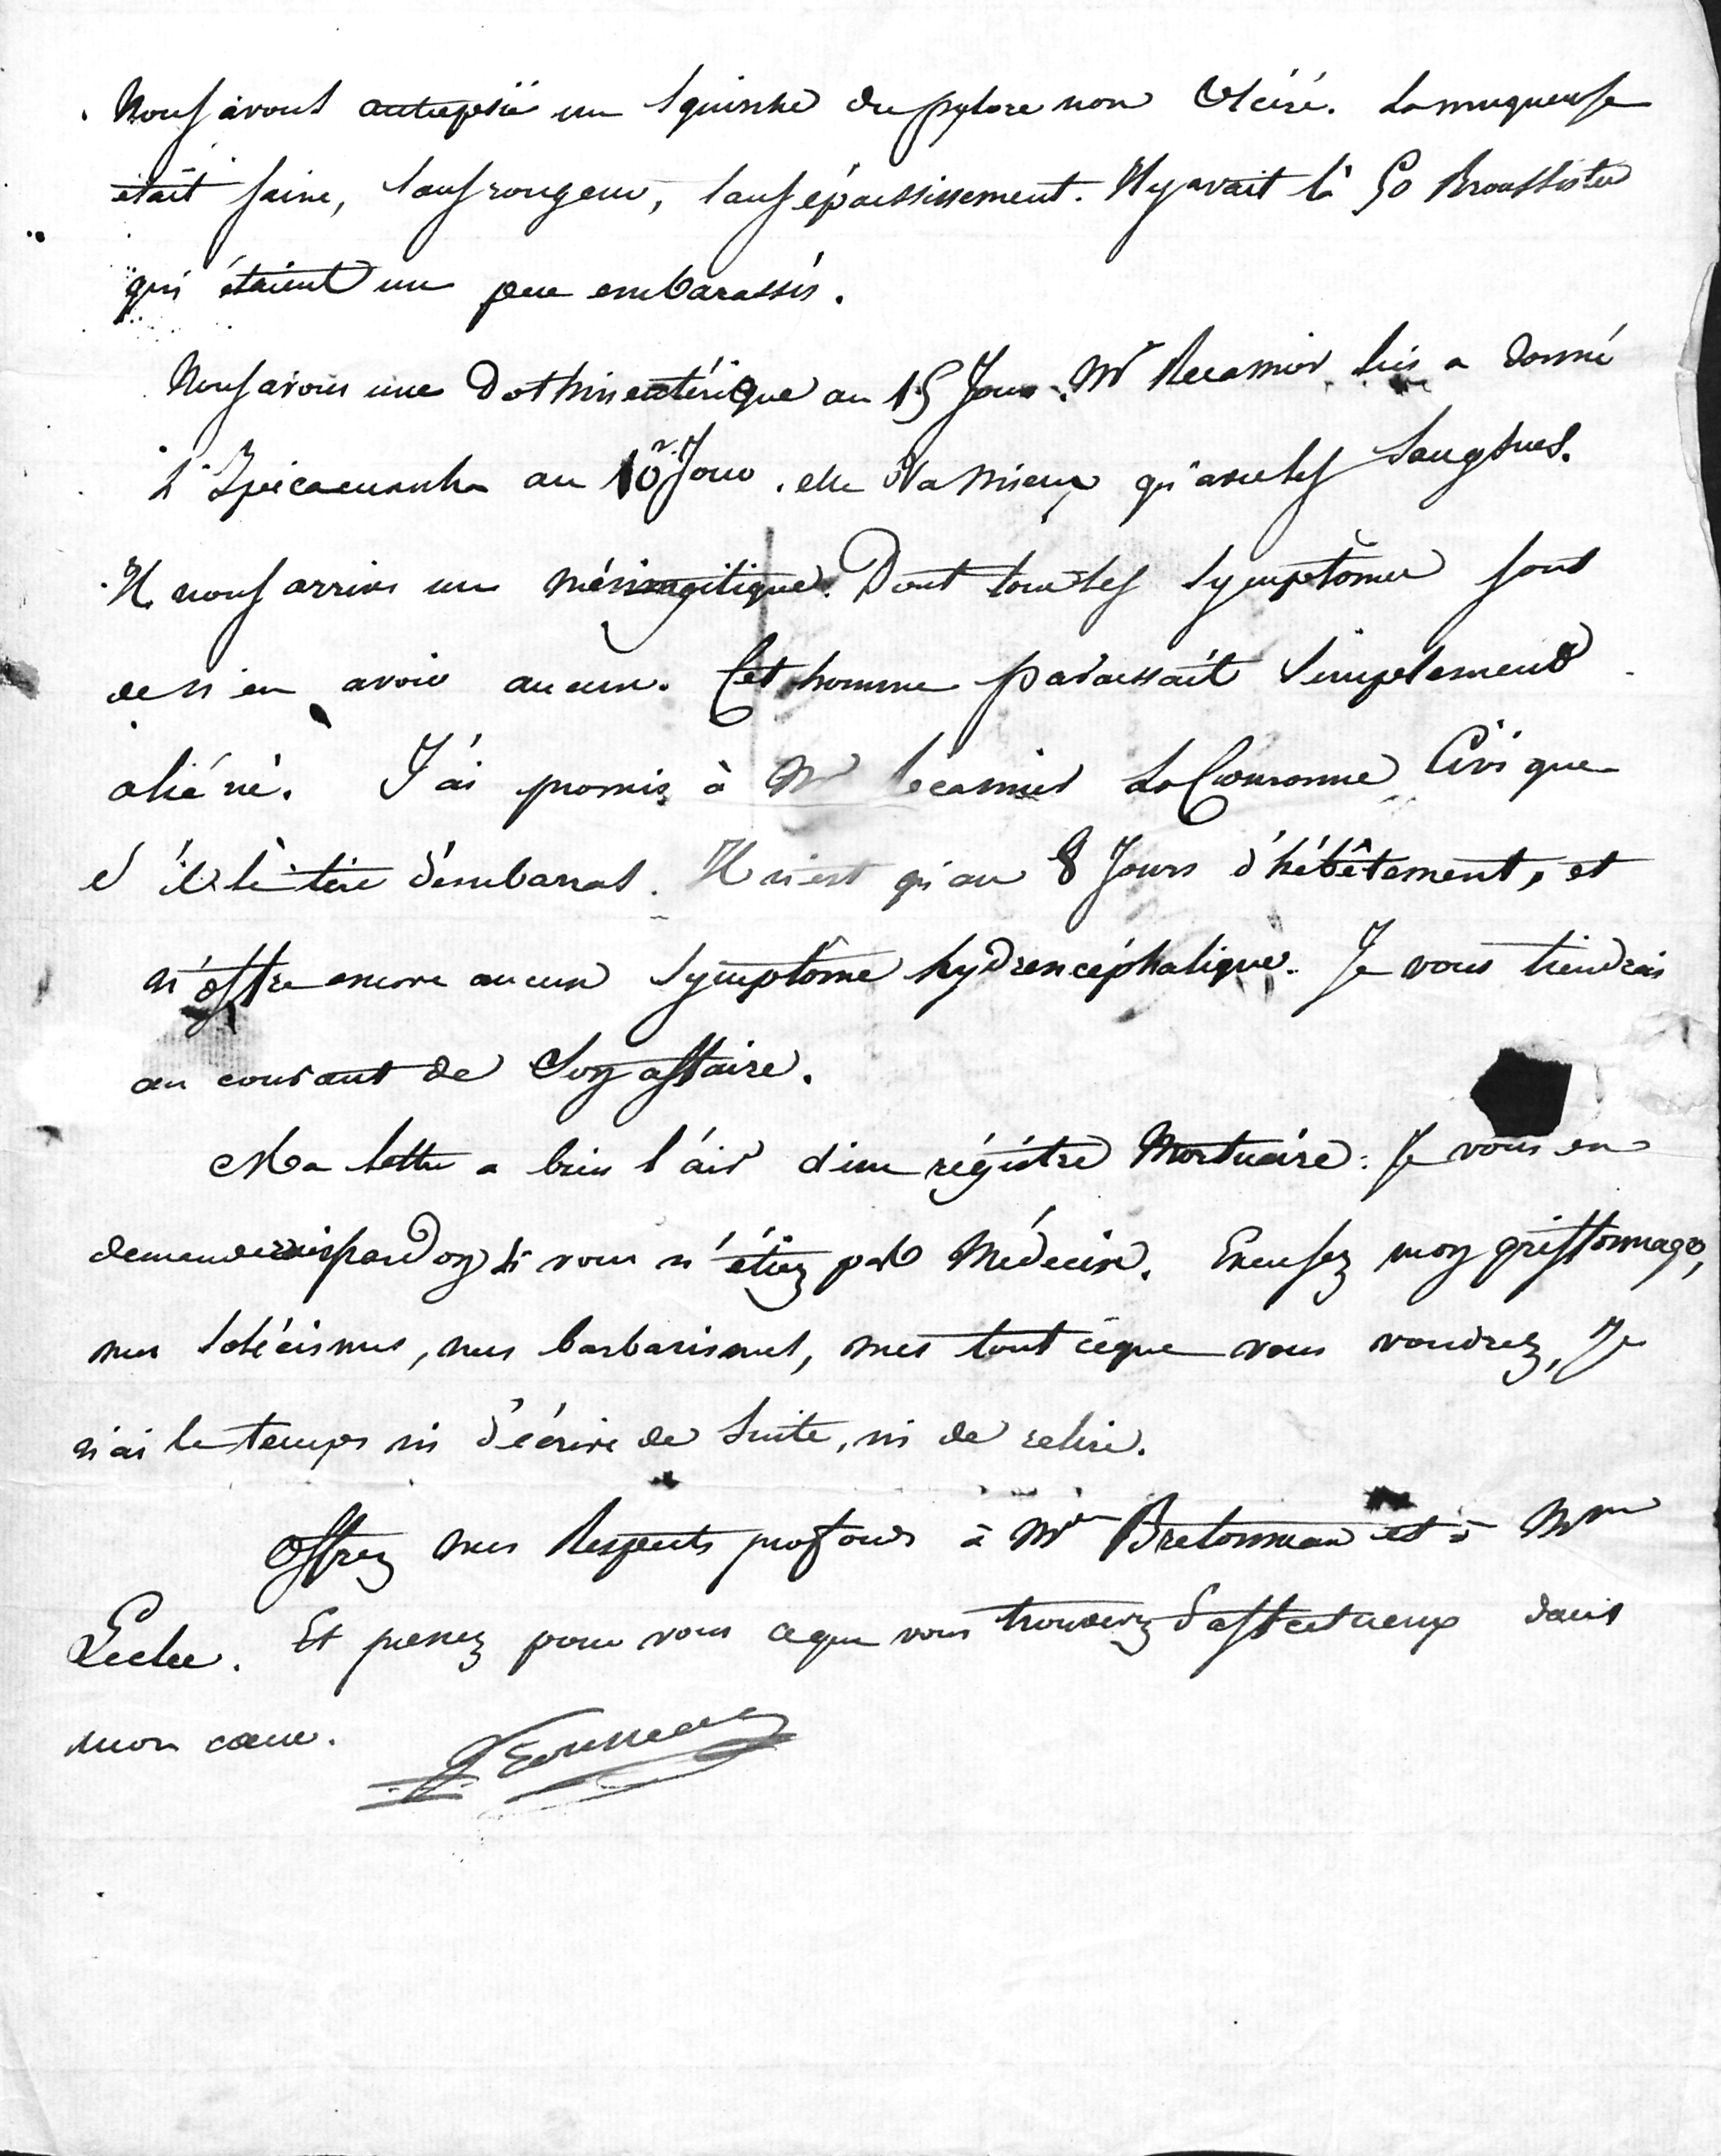 Nous avons autopsié un squirrhe du pylore non ulcéré. La muqueuse
était saine, sans rougeur, sans épaississement. Il y avait là 50 Broussistes
qui étaient un peu embarassés.
Nous avons une Dothinentérique au 15 Jour. Mr Recamier lui a donné
L'Ipicacuanha au 10e Jour. elle va mieux qu'avec les Sangsues.
Il nous arrive un méningitique. Dont tous les symptômes sont
de n'en avoir aucun. Cet homme paraissait simplement
aliéné. J'ai promis à Mr Recamier La Couronne Civique
s'il le tire d'embarras. Il n'est qu'au 8 Jours d'hébêtement, et
n'offre encore aucun symptôme hydrencéphalique. Je vous tiendrai
au courant de Son affaire.
Ma lettre a bien l'air d'un régistre Mortuaire: Je vous en
demanderais pardon si vous n'étiez pas Médecin. Excusez mon griffonnage,
mes solécismes, mes barbarismes, mes tout ce que vous voudrez, Je
n'ai le temps ni d'écrire de suite, ni de relire.
Offrez mes Respects profonds à Mme Bretonneau et à Mme
. Et prenez pour vous ce que vous trouverez d'affectueux dans
mon cœur.